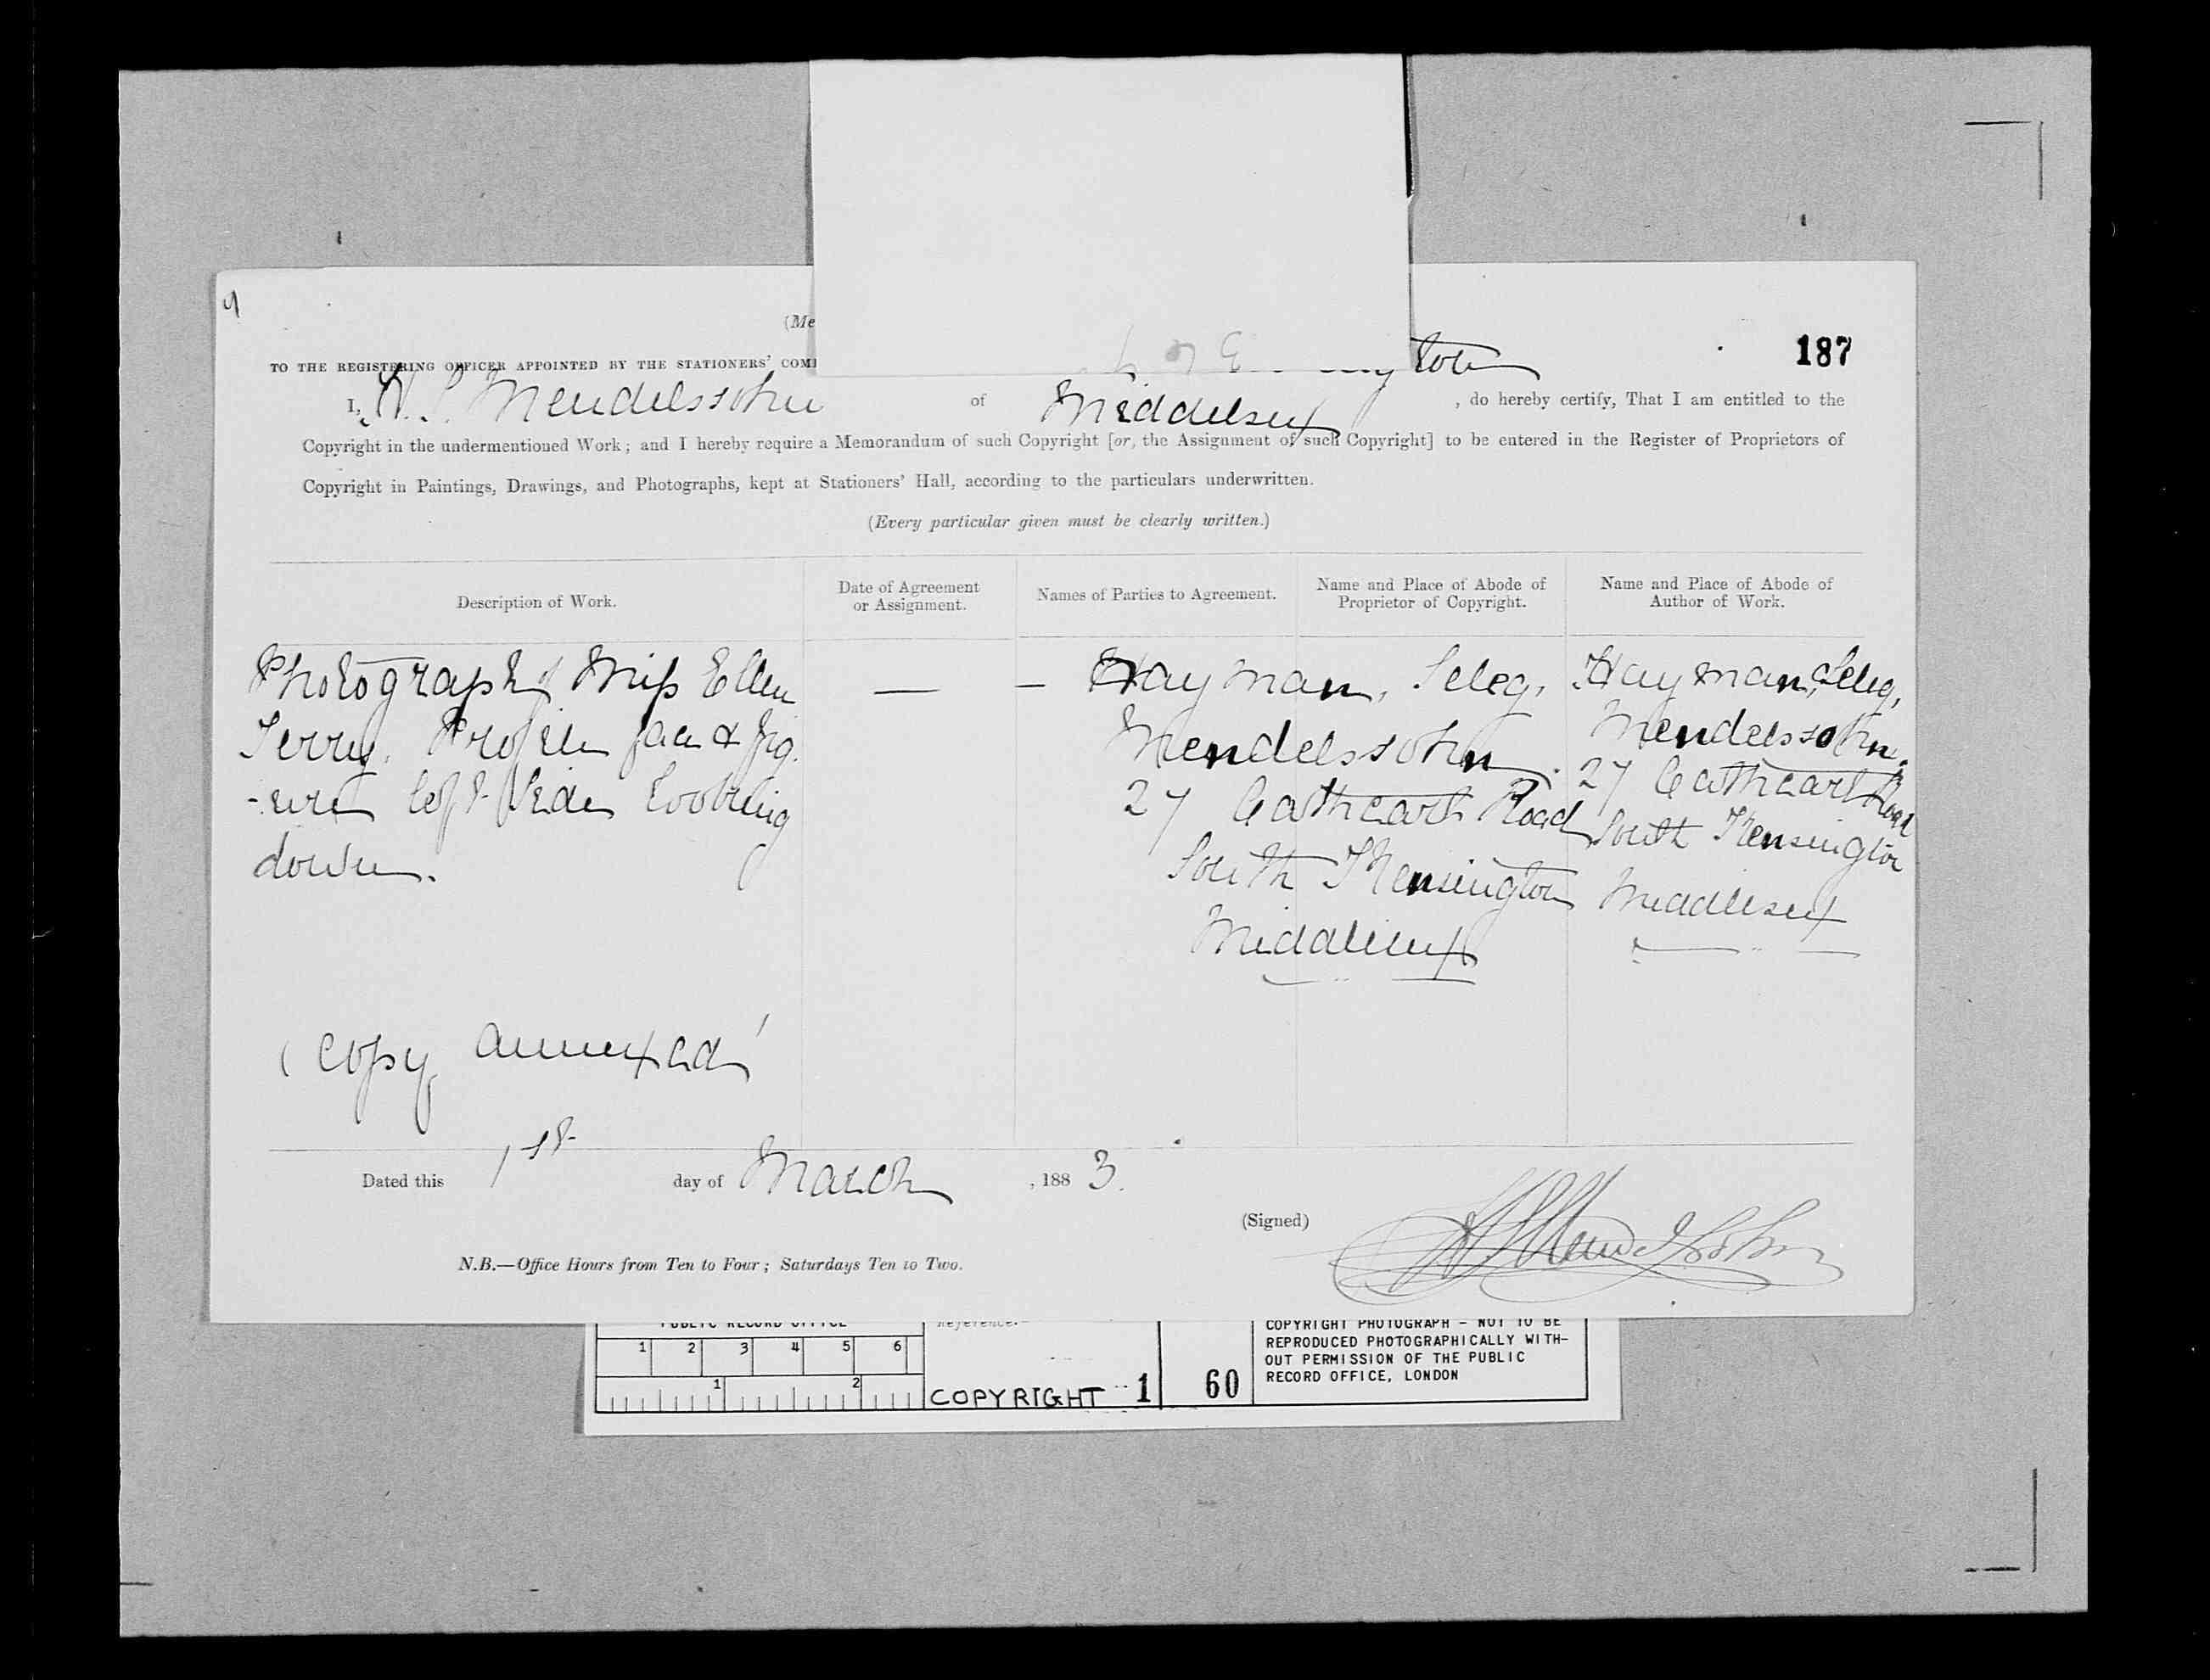 (Me
187
TO THE REGISTERING OFFICER APPOINTED BY THE STATIONERS' COM
I, H. S. Mendelssohn of Middelsex , do hereby certify, That I am entitled to the
Copyright in the undermentioned Work; and I hereby require a Memorandum of such Copyright [or, the Assignment of such Copyright] to be entered in the Register of Proprietors of
Copyright in Paintings, Drawings, and Photographs, kept at Stationers' Hall, according to the particulars underwritten.
(Every particular given must be clearly written.)
Description of Work.
Date of Agreement
or Assignment.
Names of Parties to Agreement.
Name and Place of Abode of
Proprietor of Copyright.
Name and Place of Abode of
Author of Work.
Photograph of Miss Ellen
Terry. Profile face & fig.
-ure left side looking
down.
(copy annexed)
— —
Hayman, Seleg,
Mendelssohn.
27 Cathcart Road
South Kensington
Middlesex
Hayman, Seleg,
Mendelssohn.
27 Cathcart Road
South Kensington
Middlesex
Dated this 1st day of March , 188 3.
(Signed) HSMendelssohn
N.B.—Office Hours from Ten to Four; Saturdays Ten to Two.
PUBLIC RECORD OFFICE
1 2 3 4 5 6
1 2
Reference:-
COPYRIGHT 1
60
COPYRIGHT PHOTOGRAPH - NOT TO BE
REPRODUCED PHOTOGRAPHICALLY WITH-
OUT PERMISSION OF THE PUBLIC
RECORD OFFICE, LONDON